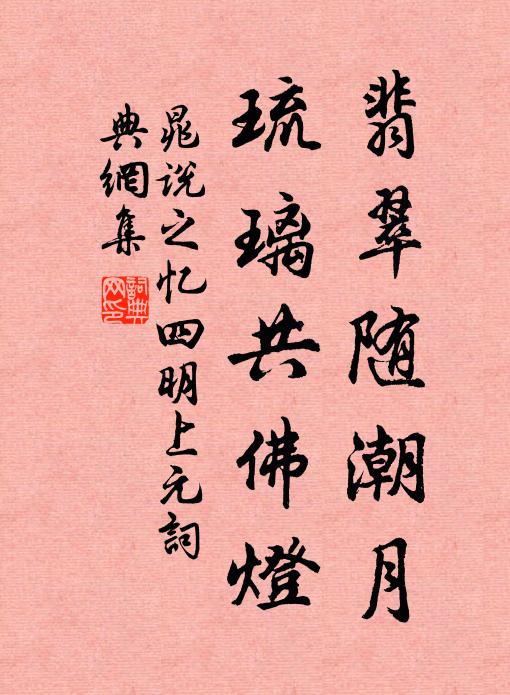 翡翠随潮月
琉璃共佛燈
晁说之忆四明上元詞
典網集
詞典网印